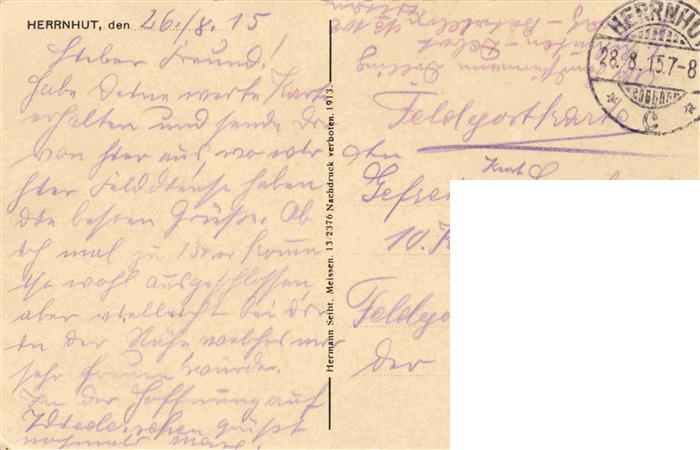 HERRNHUT, den 26./8. 15
Lieber Freund!
Habe Deine werte Karte
erhalten und sende Dir
von hier aus, wo wir
hier Felddienst haben
die besten Grüße. Ob
ich mal zu komme
ist wohl ausgeschlossen,
aber vielleicht bei Dir
in der Nähe, welches mich
sehr freuen würde.
In der Hoffnung auf
Wiedersehen grüßt
nochmals Max.
Hermann Seibt, Meissen. 13/2376 Nachdruck verboten. 1913.
HERRNHUT
28.8.15.7-8
* C *
Feldpostkarte
An
Kurt
Gefrei
10. K
Feldpo
der